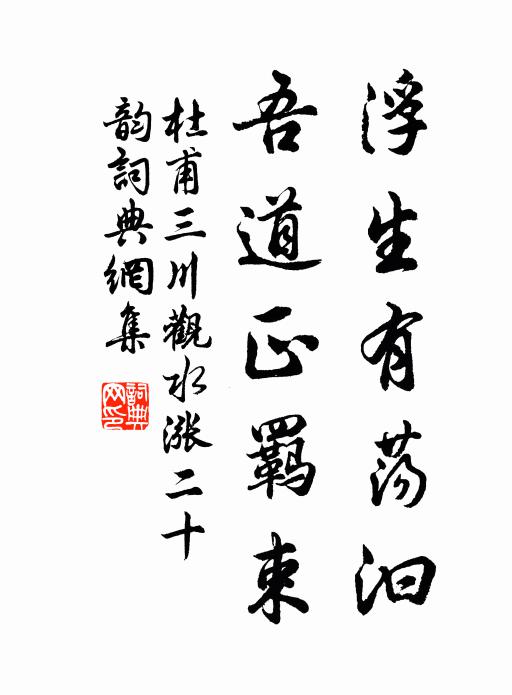 浮生有荡汩
吾道正羁束
杜甫三川觀水漲二十
韵詞典網集
詞典網印